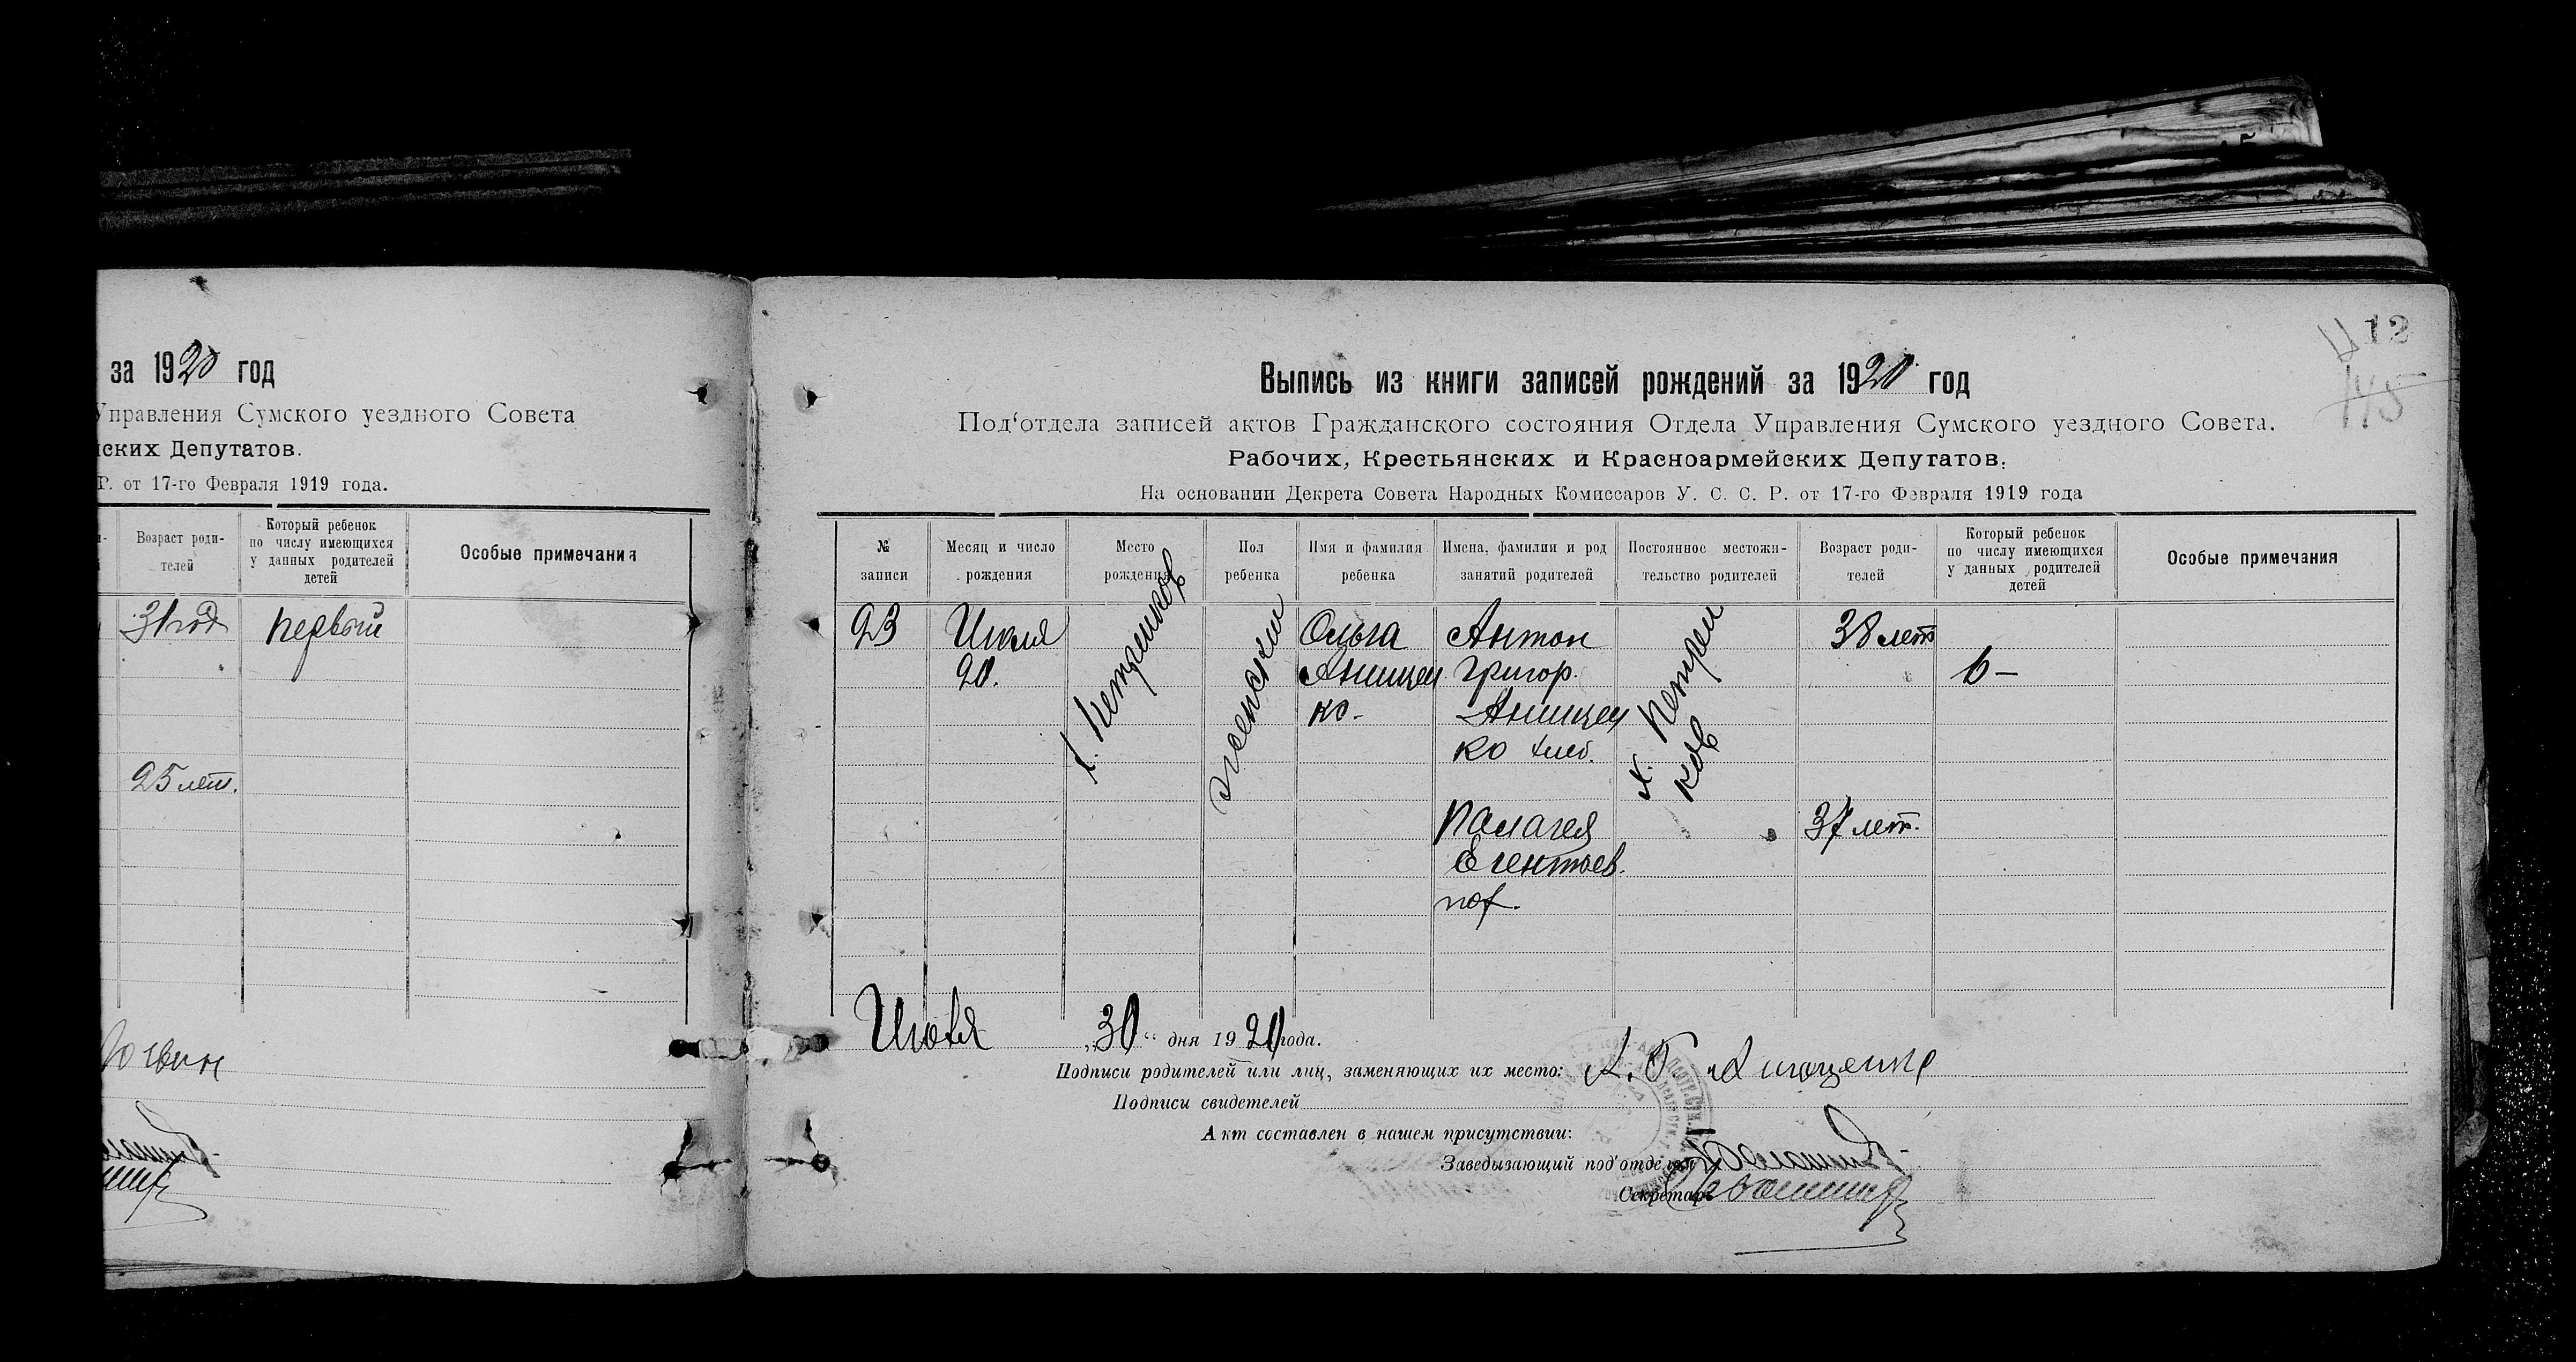 за 1920 год
Управления Сумского уездного Совета
ских Депутатов.
Р. от 17-го Февраля 1919 года.
Возраст роди-
телей
Который ребенок
по числу имеющихся
у данных родителей
детей
Особые примечания
31 год
первый
25 лет.
12
145
Выпись из книги записей рождений за 1920 год
Под‘отдела записей актов Гражданского состояния Отдела Управления Сумского уездного Совета.
Рабочих, Крестьянских и Красноармейских Депутатов.
На основании Декрета Совета Народных Комиссаров У. С. С. Р. от 17-го Февраля 1919 года
№
записи
Месяц и число
рождения
Место
рождения
Пол
ребенка
Имя и фамилия
ребенка
Имена, фамилии и род
занятий родителей
Постоянное местожи-
тельство родителей
Возраст роди-
телей
Который ребенок
по числу имеющихся
у данных родителей
детей
Особые примечания
23
Июля
20.
х. Петренков
женский
Ольга
Анищен
ко-
Антон
Григор.
Анищен
ко хлеб.
Палагея
х. Петрен
ков
38 лет
37 лет.
6 —
Июля „30“ дня 1920 года.
Подписи родителей или лиц, заменяющих их место: А. Г. Анищенко
Подписи свидетелей
Акт составлен в нашем присутствии:
Заведывающий под‘отделом
Секретарь